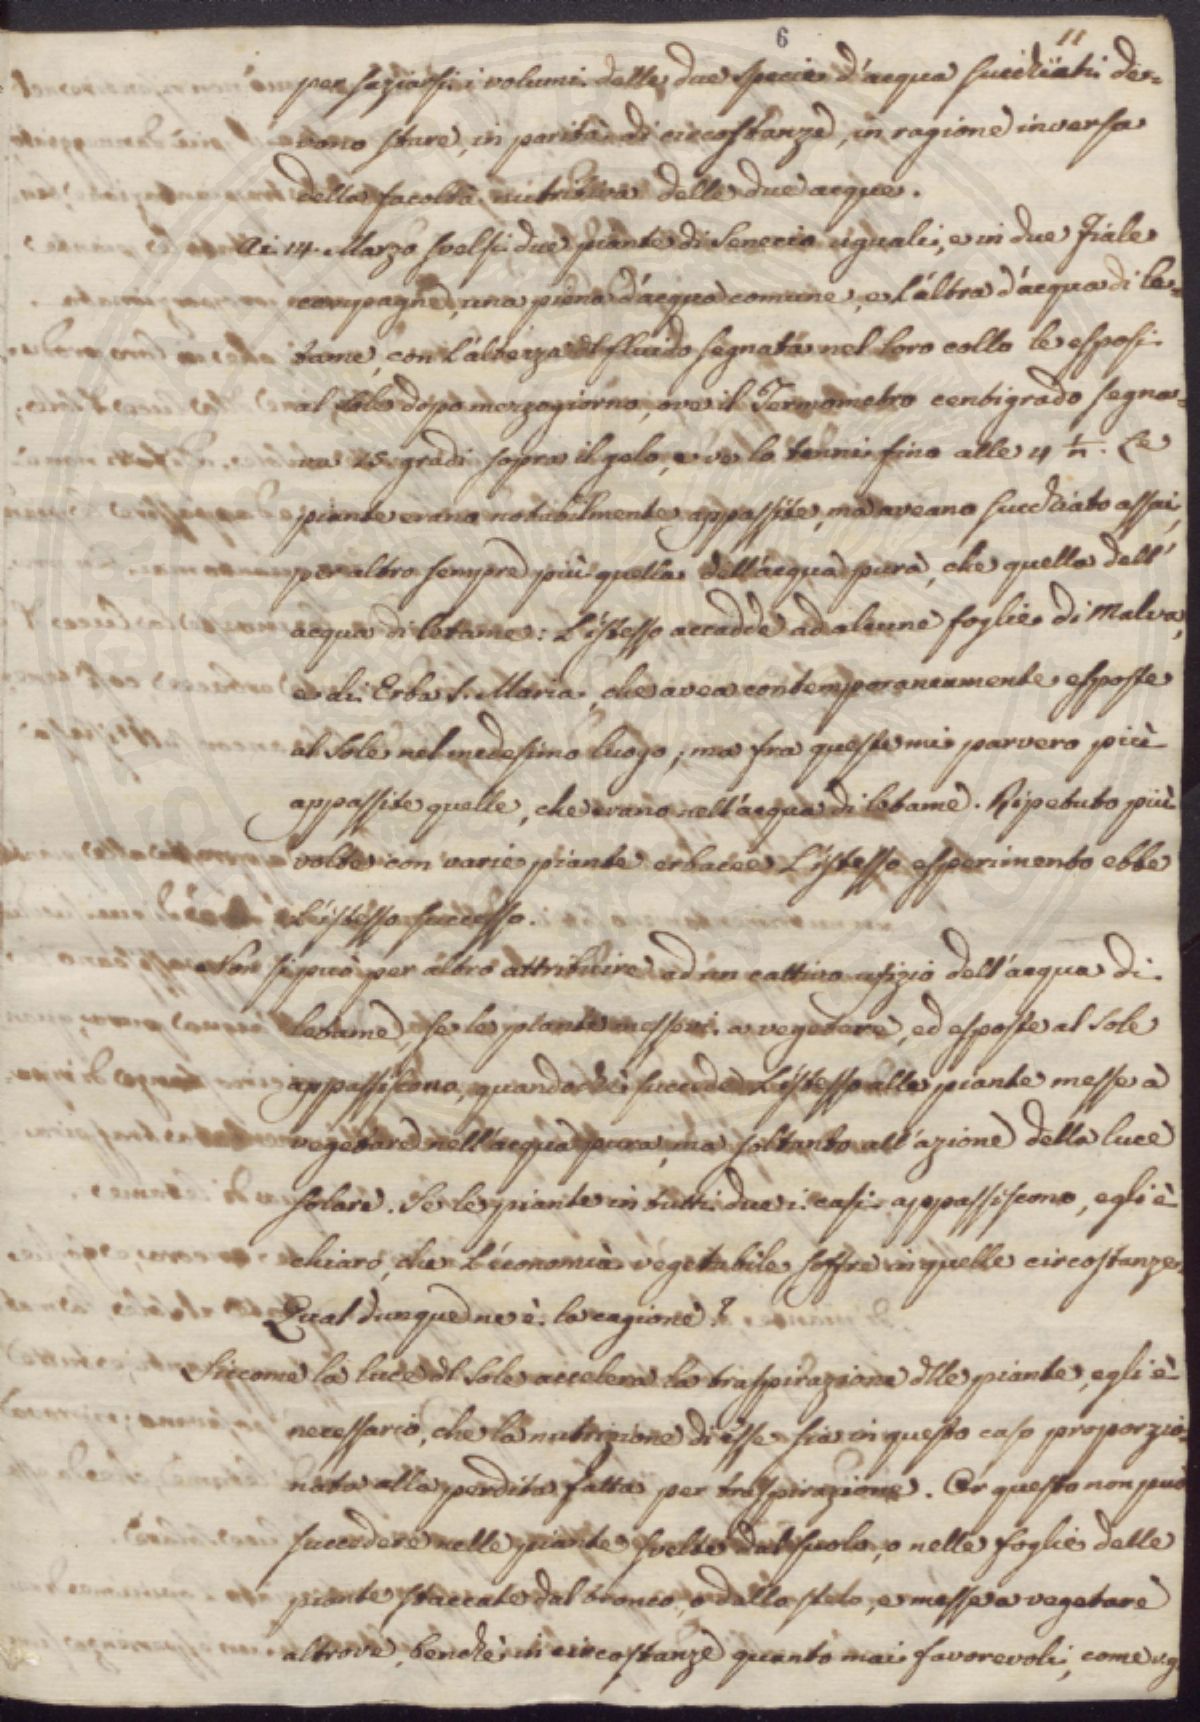 6 11
per saziarsi i volumi delle due specie d'acqua succhiati de-
vono stare, in parità di circostanze, in ragione inversa
della facoltà nutritiva delle due acque.
Ai 14 Marzo svelsi due piante di Senecio uguali, e in due Fiale
compagne, una piena d'acqua comune, e l'altra d'acqua di le-
tame, con l'altezza dl fluido segnata nel loro collo le esposi
al Sole dopo mezzogiorno, ove il Termometro centigrado segna-
va 15 gradi sopra il gelo, e ve lo tenni fino alle 4 ½. Le
piante erano notabilmente appassite, ma aveano succhiato assai,
per altro sempre più quella dell'acqua pura, che quella dell'
acqua di letame: L'istesso accadde ad alcune foglie di Malva,
e di Erba S. Maria, che avea contemporaneamente esposte
al Sole nel medesimo luogo; ma fra queste mi parvero più
appassite quelle, che erano nell'acqua di letame. Ripetuto più
volte con varie piante erbacee L'istesso esperimento ebbe
L'istesso successo.
Non si può per altro attribuire ad un cattivo ufizio dell'acqua di
letame, se le piante messevi a vegetare, ed esposte al Sole
appassiscono, quando ciò succede L'istesso alle piante messe a
vegetare nell'acqua pura, ma soltanto all'azione della luce
solare. Se le piante in tutti due i casi appassiscono, egli è
chiaro, che L'economia vegetabile soffre in quelle circostanze.
Qual dunque ne è la cagione?
Siccome la luce dl Sole accelera la traspirazione dlle piante, egli è
necessario, che la nutrizione di esse sia in questo caso proporzio-
nata alla perdita fatta per traspirazione. Or questo non può
succedere nelle piante svelte dal suolo, o nelle foglie delle
piante staccate dal tronco, o dallo stelo, e messe a vegetare
altrove, benchè in circostanze quanto mai favorevoli, come v.g.